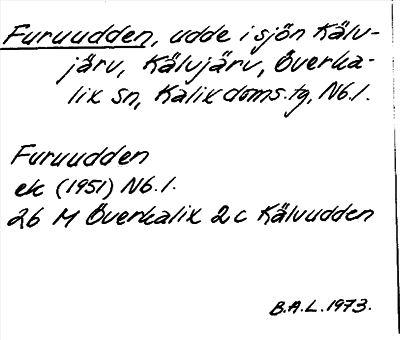 Furuudden, udde i sjön Kälu-
järv, Kälvjärv, Överka-
lix sn, Kalix doms.tg, Nb.l.
Furuudden
ek (1951) Nb.l.
26 M Överkalix 2c Kälvudden
B.A.L. 1973.